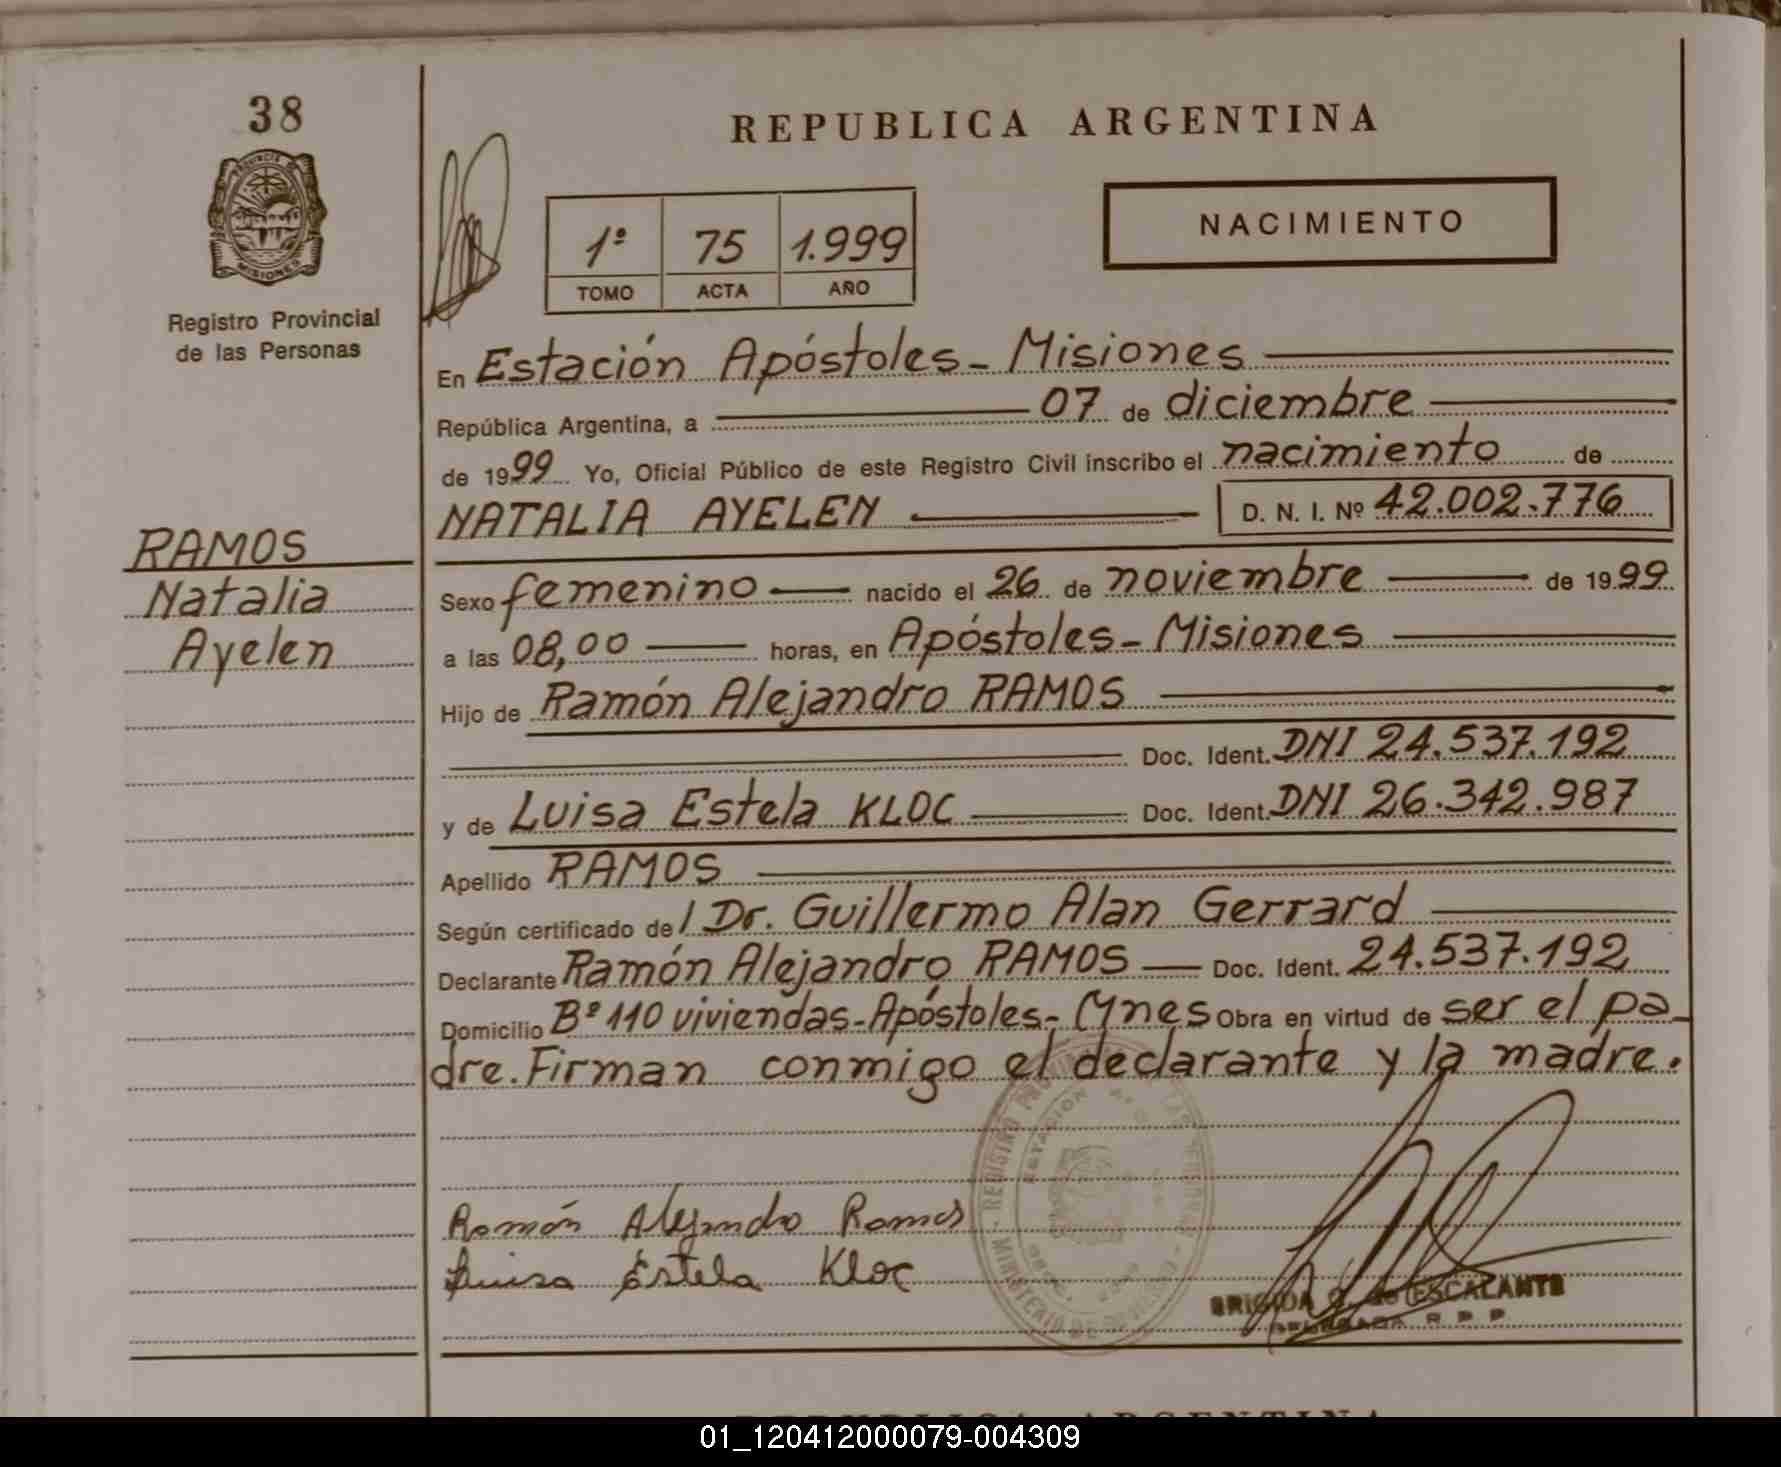 38
PROVINCIA DE
MISIONES
Registro Provincial
de las Personas
RAMOS
Natalia
Ayelen
REPUBLICA ARGENTINA
1º 75 1.999
TOMO ACTA AÑO
NACIMIENTO
En Estación Apóstoles - Misiones
República Argentina, a 07 de diciembre
de 1999 Yo, Oficial Público de este Registro Civil inscribo el nacimiento de
NATALIA AYELEN D. N. I. Nº 42.002.776
Sexo femenino nacido el 26 de noviembre de 1999
a las 08,00 horas, en Apóstoles - Misiones
Hijo de Ramón Alejandro RAMOS
Doc. Ident. DNI 24.537.192
y de Luisa Estela KLOC Doc. Ident. DNI 26.342.987
Apellido RAMOS
Según certificado de l Dr. Guillermo Alan Gerrard
Declarante Ramón Alejandro RAMOS Doc. Ident. 24.537.192
Domicilio Bº 110 viviendas - Apóstoles - Mnes Obra en virtud de ser el pa-
dre. Firman conmigo el declarante y la madre.
Ramón Alejandro Ramos
Luisa Estela Kloc
REGISTRO
ESTACION
MINISTERIO DE
BRIGIDA G. de ESCALANTE
DELEGADA R P P
REPUBLICA ARGENTINA
01_120412000079-004309